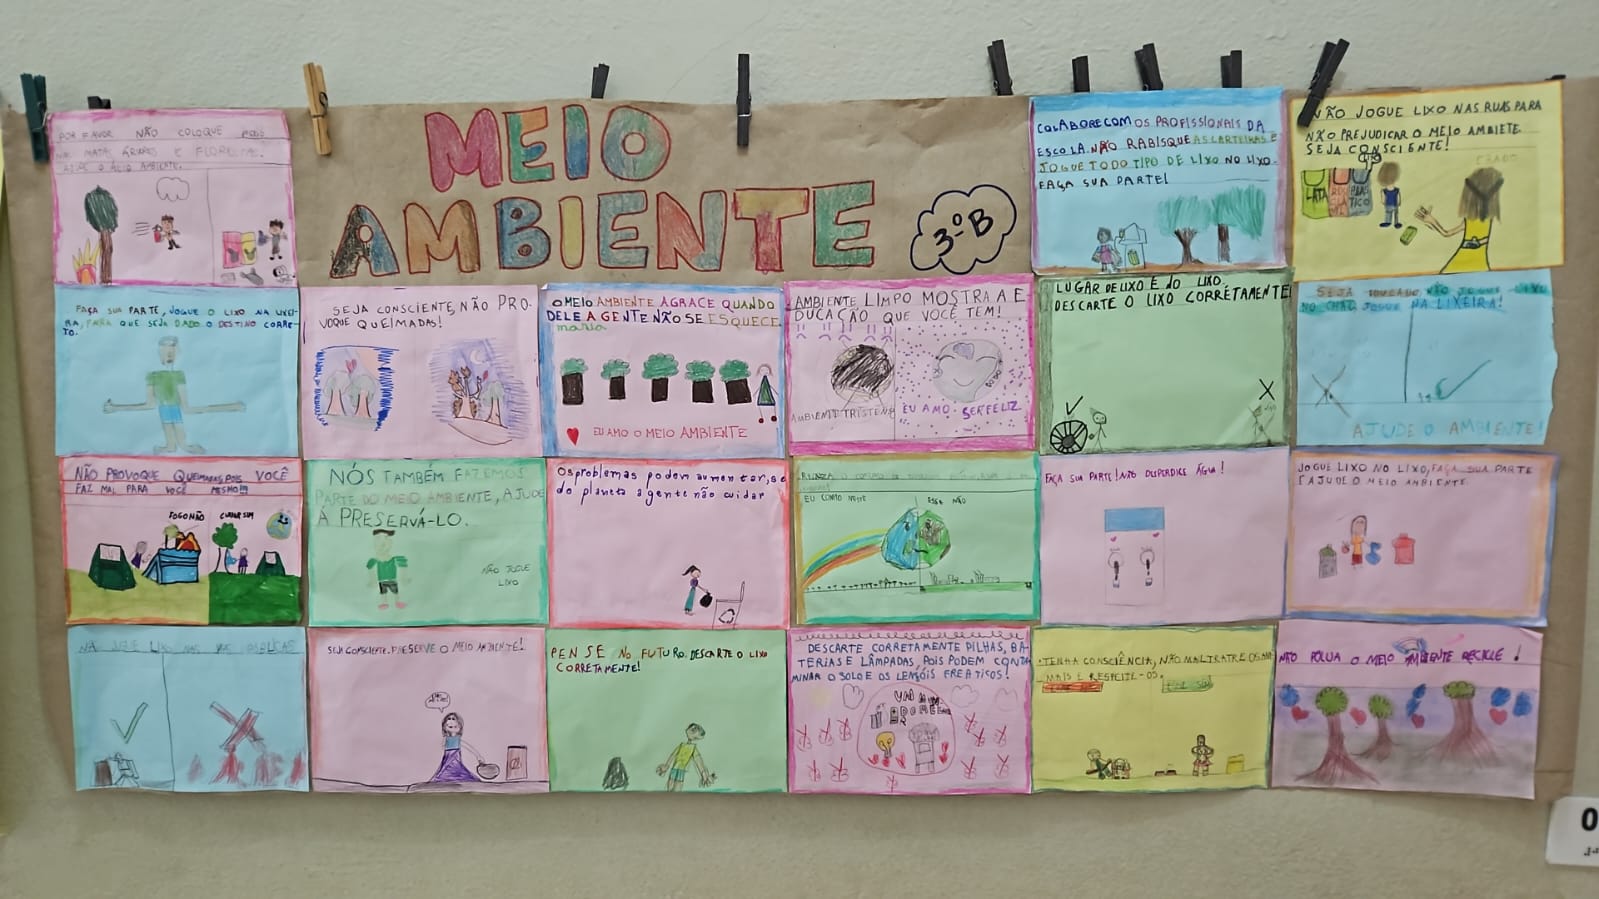 MEIO
AMBIENTE
3º B
POR FAVOR NÃO COLOQUE FOGO
NAS MATAS ÁRVORES E FLORESTAS.
AJUDE O MEIO AMBIENTE.
COLABORE COM OS PROFISSIONAIS DA
ESCOLA. NÃO RABISQUE AS CARTEIRAS E
JOGUE TODO TIPO DE LIXO NO LIXO.
FAÇA SUA PARTE!
NÃO JOGUE LIXO NAS RUAS PARA
NÃO PREJUDICAR O MEIO AMBIETE.
SEJA CONSCIENTE!
LATA
PLAS
TICO
FAÇA SUA PARTE, JOGUE O LIXO NA LIXEI-
RA, PARA QUE SEJA DADO O DESTINO CORRE-
TO.
SEJA CONSCIENTE, NÃO PRO-
VOQUE QUEIMADAS!
O MEIO AMBIENTE AGRACE QUANDO
DELE A GENTE NÃO SE ESQUECE
maria
EU AMO O MEIO AMBIENTE
AMBIENTE LIMPO MOSTRA A E
DUCAÇÃO QUE VOCÊ TEM!
AMBIENTE TRISTE
EU AMO. SER FELIZ
LUGAR DE LIXO É DO LIXO.
DESCARTE O LIXO CORRETAMENTE
SEJA EDUCADO NÃO JOGUE LIXO
NO CHÃO, JOGUE NA LIXEIRA!
AJUDE O AMBIENTE!
NÃO PROVOQUE QUEIMADAS, POIS VOCÊ
FAZ MAL PARA VOCÊ MESMO!!!
FOGO NÃO
CUIDAR SIM
NÓS TAMBÉM FAZEMOS
PARTE DO MEIO AMBIENTE, AJUDE
Á PRESERVÁ-LO.
NÃO JOGUE
LIXO
Os problemas podem aumentar, se
do planeta a gente não cuidar
FAÇA SUA PARTE! NÃO DESPERDICE ÁGUA!
JOGUE LIXO NO LIXO, FAÇA SUA PARTE
E AJUDE O MEIO AMBIENTE.
NÃ JOGUE LIXO NAS VIAS PÚBLICAS
SEJA CONSCIENTE. PRESERVE O MEIO AMBIENTE!
PENSE NO FUTURO. DESCARTE O LIXO
CORRETAMENTE!
DESCARTE CORRETAMENTE PILHAS, BA-
TERIAS E LÂMPADAS, POIS PODEM CONTA
MINAR O SOLO E OS LENÇÓIS FREÁTICOS!
TENHA CONSCIÊNCIA, NÃO MALTRATRE OS ANI
MAIS E RESPEITE-OS.
NÃO POLUA O MEIO AMBIENTE RECICLE!